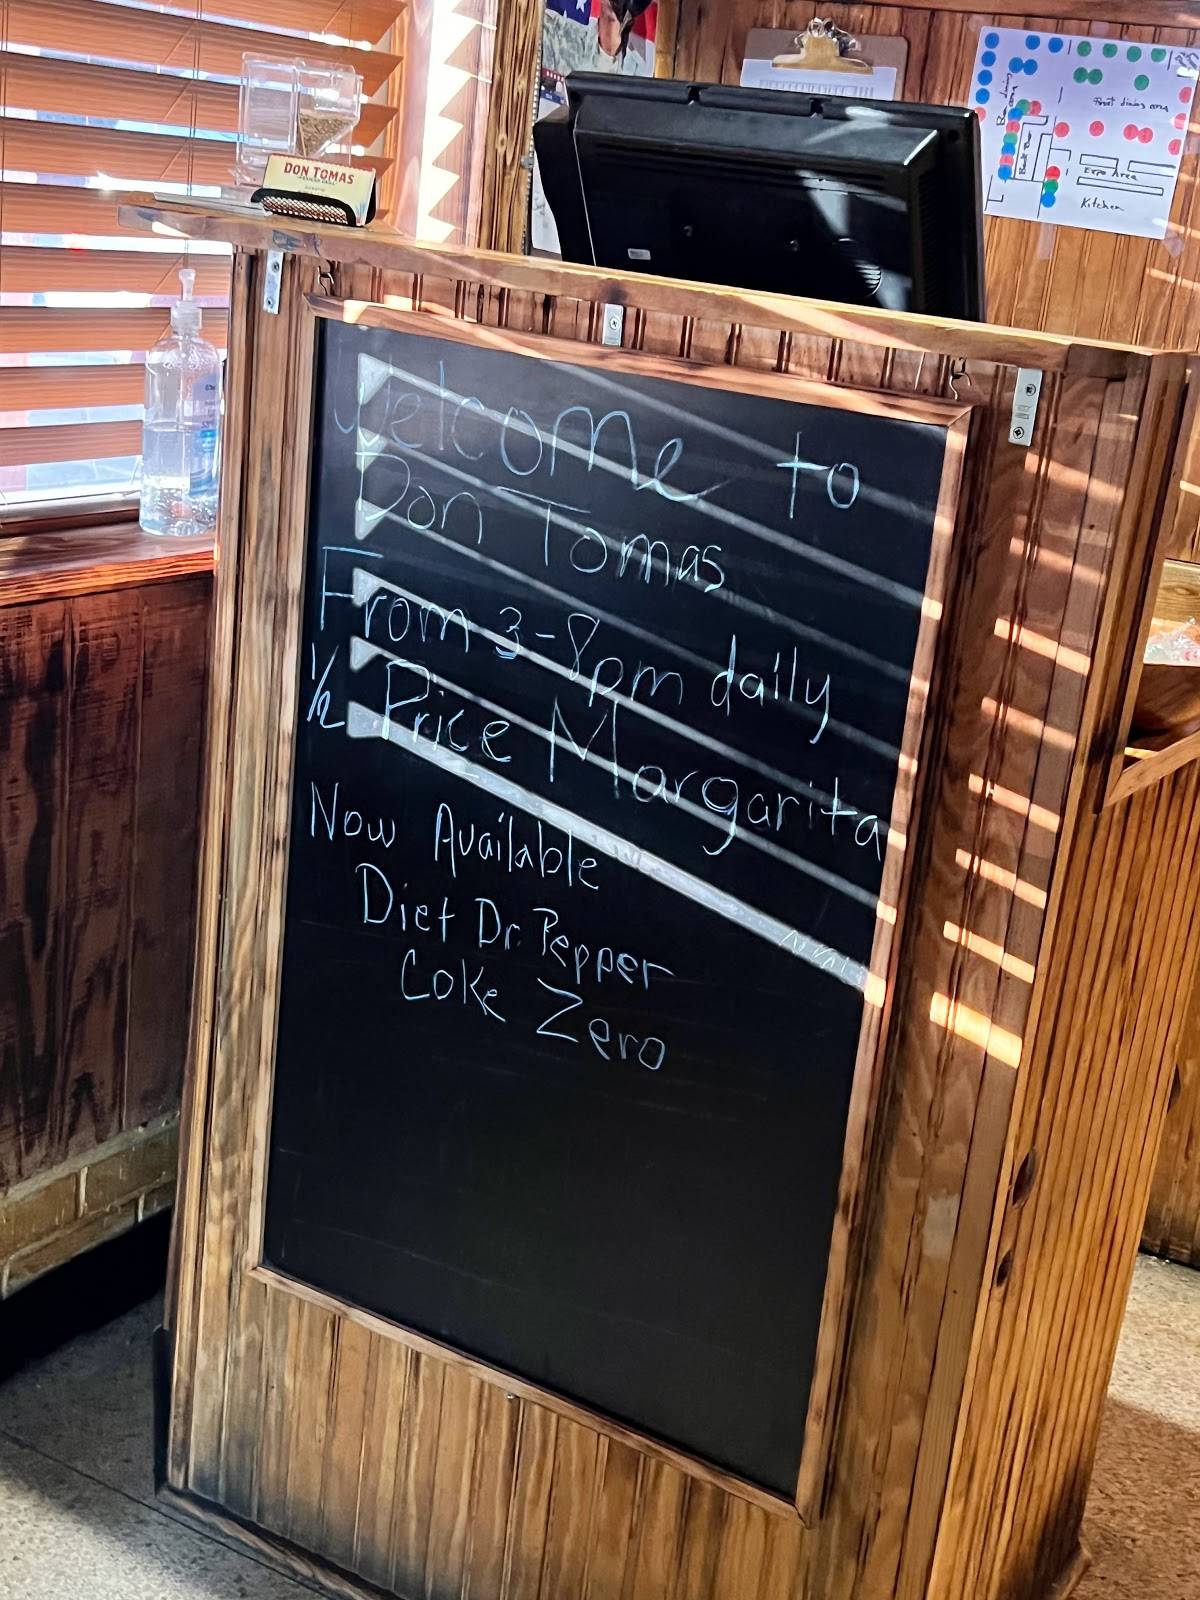 DON TOMAS
Front dining area
Expo Area
Kitchen
Welcome to
Don Tomas
From 3-8pm daily
1/2 Price Margarita
Now Available
Diet Dr. Pepper
Coke Zero